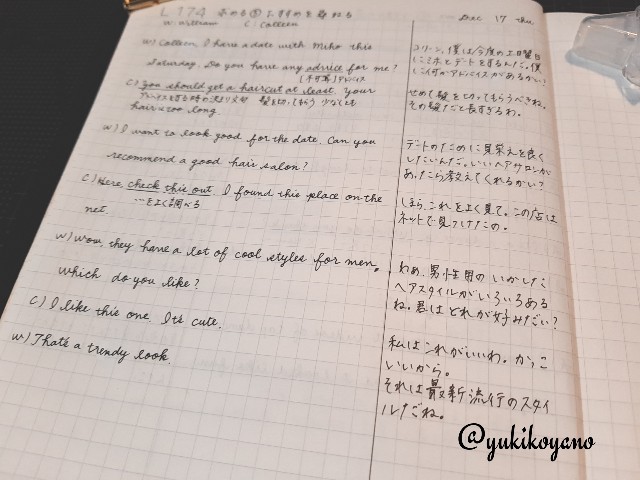 L 174 求める⑤ おすすめを尋ねる Dec 17 thu
W: William C: Colleen
W) Colleen, I have a date with Miho this
Saturday. Do you have any advice for me?
(不可算)アドバイス
C) You should get a haircut at least. Your
アドバイスをする時の決まり文句 髪を切ってもらう 少なくとも
hair is too long.
W) I want to look good for the date. Can you
recommend a good hair salon?
C) Here, check this out. I found this place on the
…をよく調べる
net.
W) Wow, they have a lot of cool styles for men.
Which do you like?
C) I like this one. It's cute.
W) That's a trendy look.
コリーン、僕は今度の土曜日
にミホとデートをするんだ。僕
に何かアドバイスがあるかい?
せめて髪を切ってもらうべきね。
その髪だと長すぎるわ。
デートのために見栄えを良く
したいんだ。いいヘアサロンが
あったら教えてくれるかい?
ほら、これをよく見て。この店は
ネットで見つけたの。
わぁ、男性用のいかした
ヘアスタイルがいろいろある
ね。君はどれが好みだい?
私はこれがいいわ。かっこ
いいから。
それは最新流行のスタイ
ルだね。
@yukikoyano